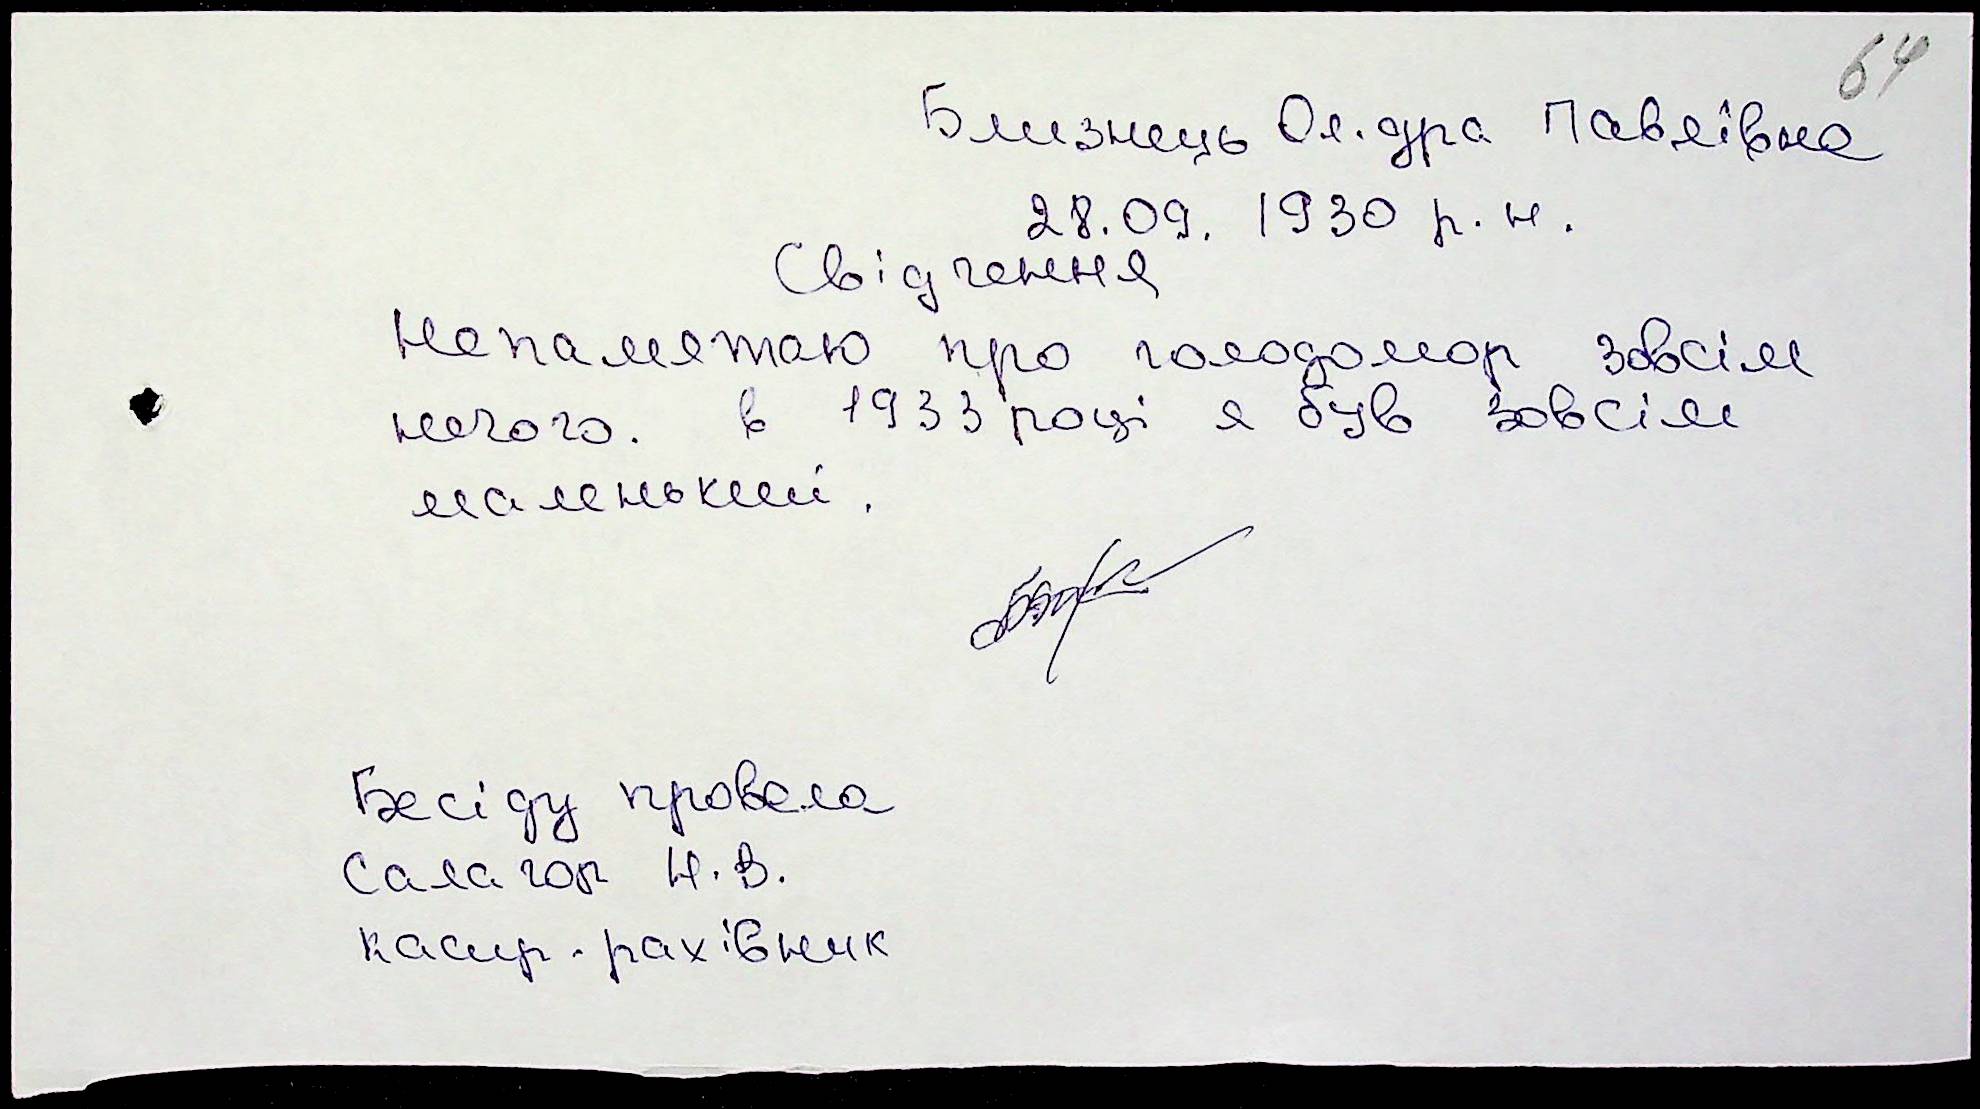 64
Близнець Ол.дра Павлівна
28.09.1930 р.н.
Свідчення
Непамятаю про голодомор зовсім
нечого. в 1933 році я був зовсім
маленький.
Бесіду провела
Салагор Н.В.
касир-рахівник